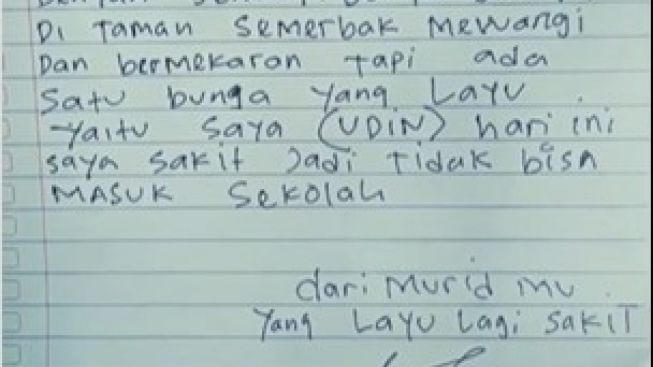 Di Taman Semerbak Mewangi
Dan bermekaran tapi ada
Satu bunga Yang Layu.
Yaitu Saya (UDIN) hari ini
saya sakit Jadi Tidak bisa
MASUK Sekolah
dari Murid mu.
Yang Layu Lagi SAKIT